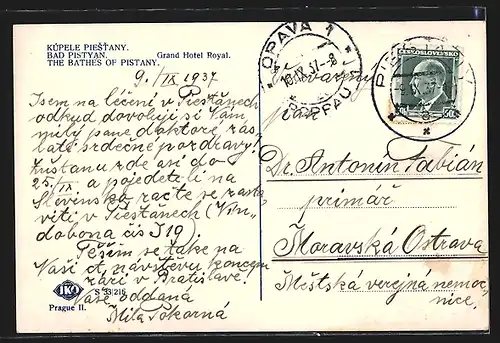 KÚPELE PIEŠŤANY.
BAD PISTYAN. Grand Hotel Royal.
THE BATHES OF PISTANY.
9./IX 1937
Jsem na léčení v Piešťanech
odkud dovoluji si Vám,
milý pane doktore zas-
lati srdečné pozdravy!
Zůstanu zde asi do
25/IX a pojedete li na
Slovensko račte se zasta-
viti v Piešťanech (Vin-
dobona čís J 19).
Těším se také na
Vaši ct. návštěvu koncem
září v Bratislavě!
Vaše oddaná
Míla Pokorná
IKA
S 33/216
Prague II.
OPAVA 1
10.IX.37-8
TROPPAU
PIEŠŤANY
ČESKOSLOVENSKO
50
Dr. Antonín Fabián
primář
Moravská Ostrava
Městská veřejná nemoc
nice.